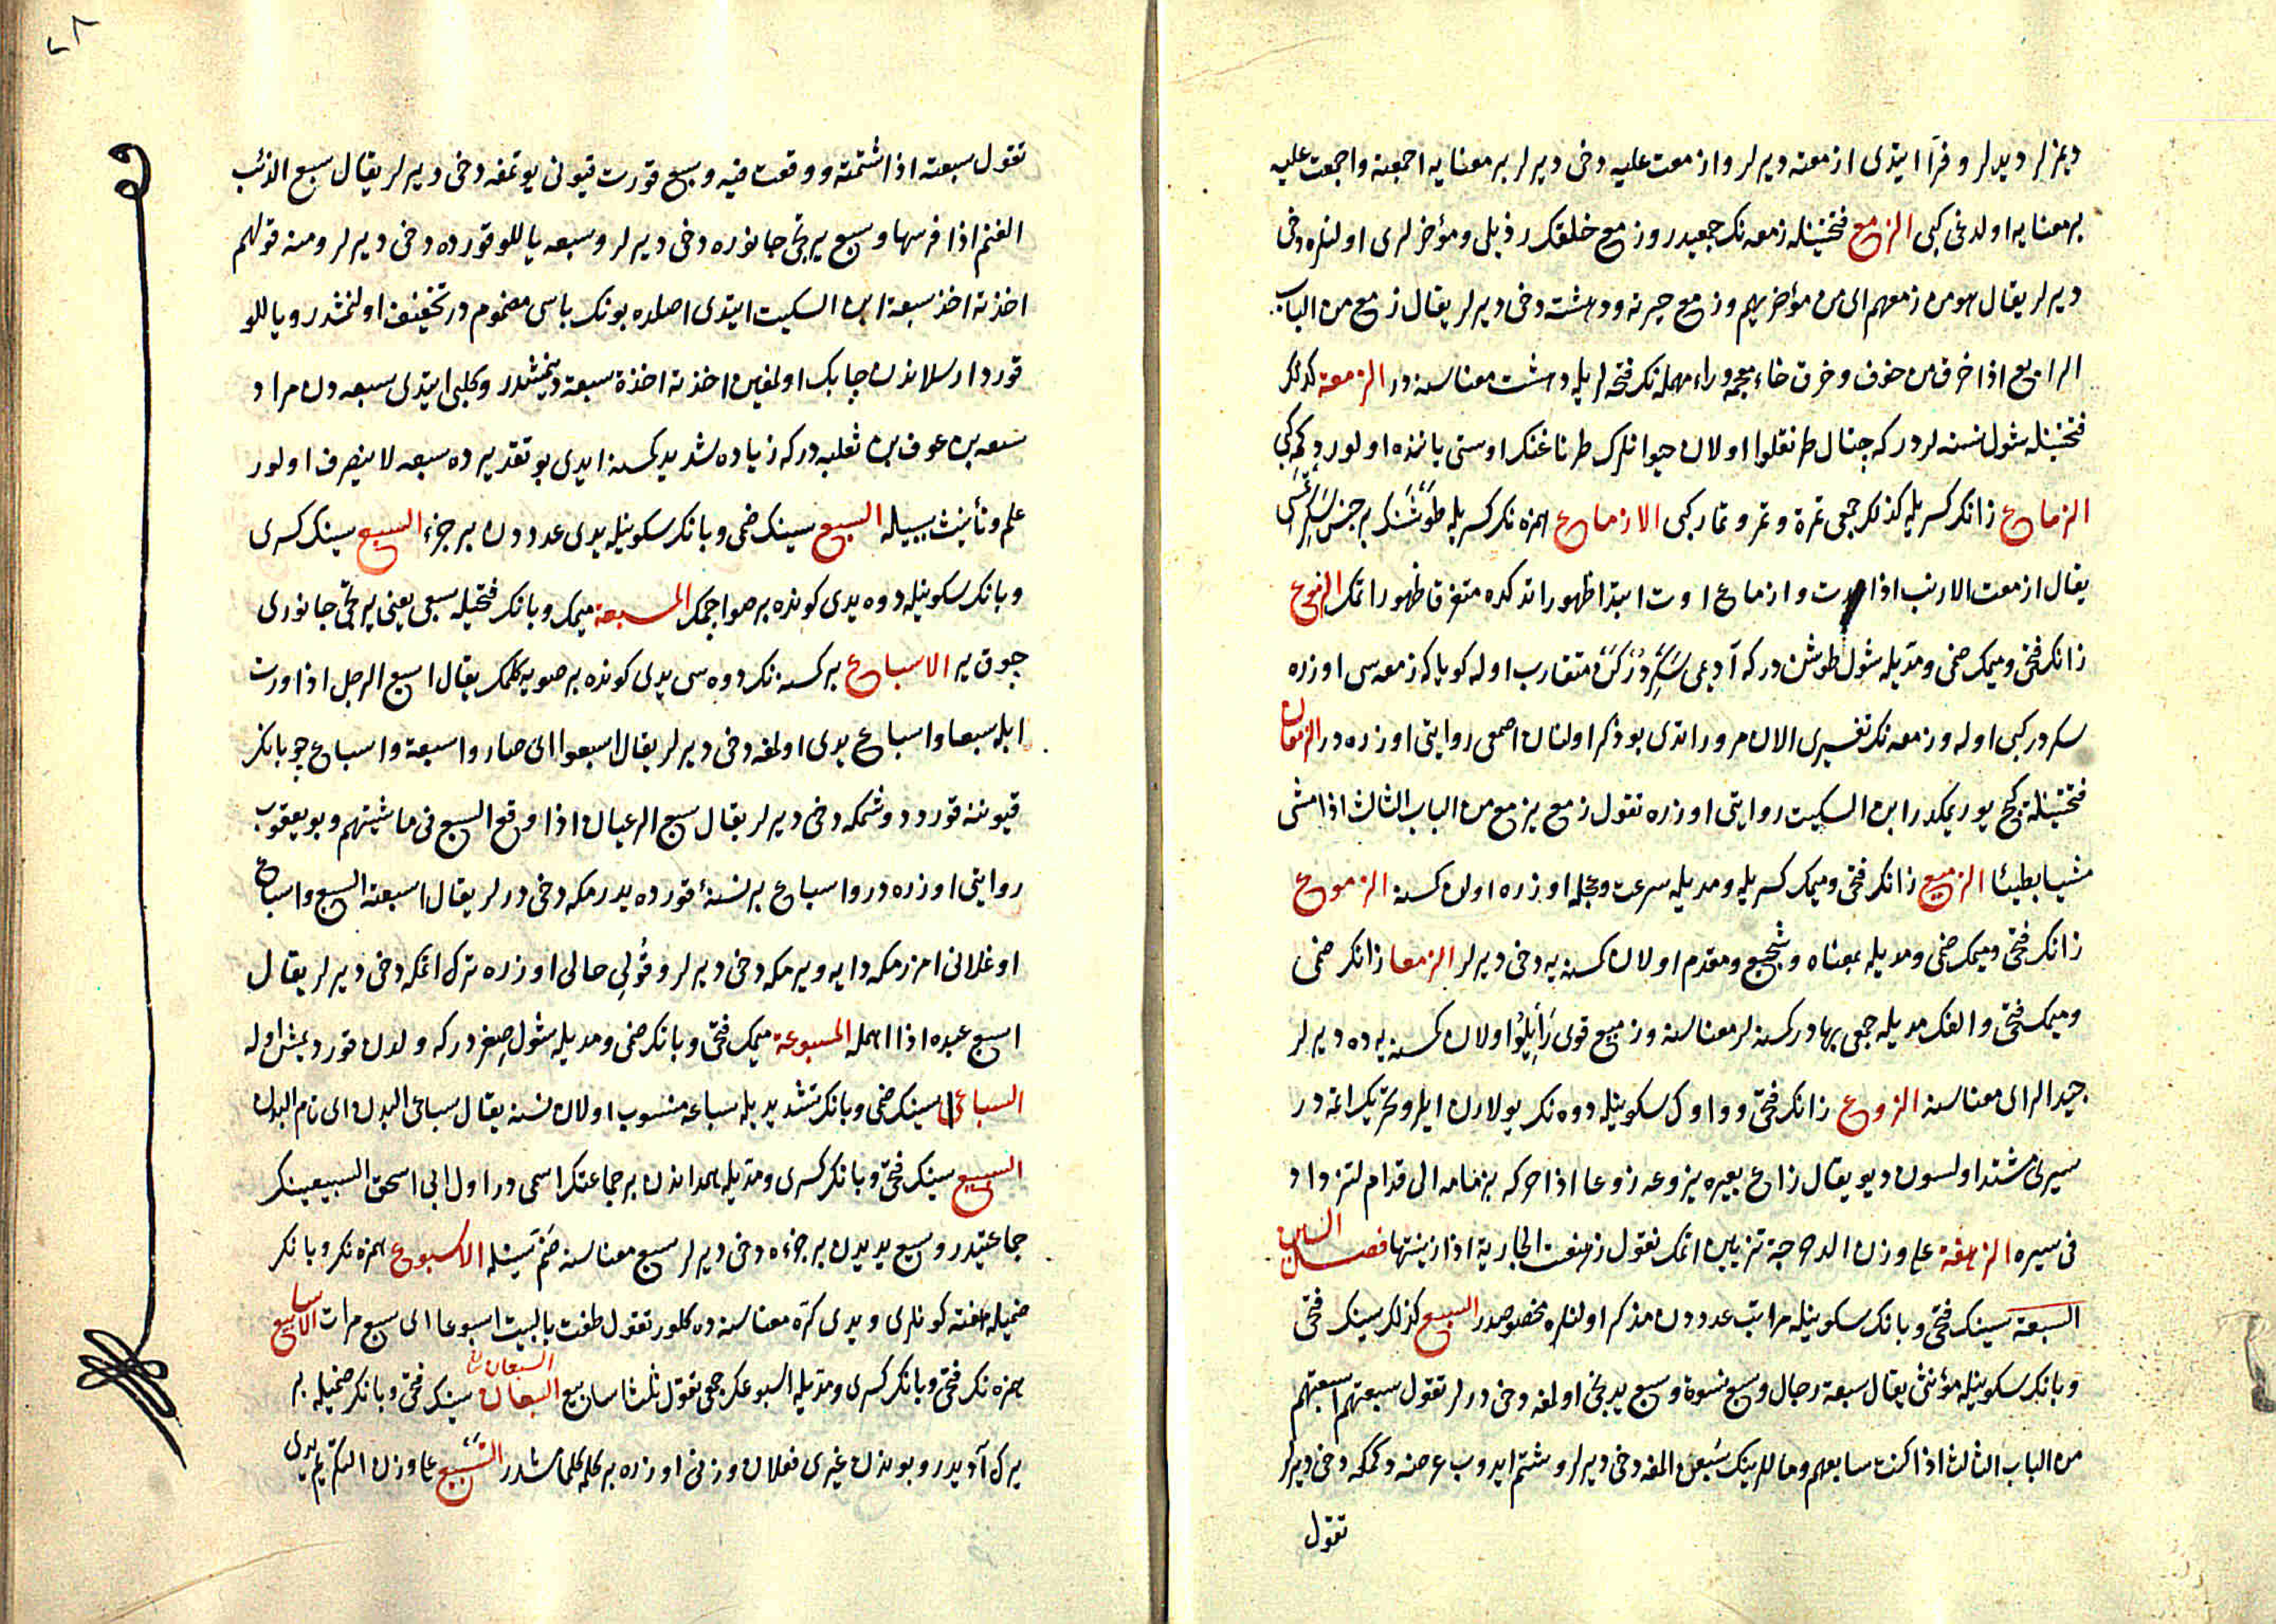 ديمزلر ديديلر وفرّا ايتدى ازمعته ديرلر وازمعت عليه دخى ديرلر بر معنايه اجمعته واجمعت عليه
بر معنايه اولدغى كبى الزمع فتحتينله زمعه نك جمعيدر وزمع خلقك رذيلى ومؤخرلرى اولنلره دخى
ديرلر يقال هو من زمعهم اى من مؤخريهم وزمع حيرته ودهشته دخى ديرلر يقال زمع من الباب
الرابع اذا خرق من خوف وخرق خاء معجمه وراء مهمله نك فتحه لريله دهشت معناسنه در الزمعة كذلك
فتحتينله شول نسنه لردر كه چتال طرنقلوا اولان حيوانلرك طرناغنك اوستى ياننده اولور دكمه كبى
الزماع زانك كسريله كذلك جمعى ثمرة وثمر وثمار كبى الازماع همزه نك كسريله طوشنك بر جنس سكرتمسى
يقال ازمعت الارنب اذا عدت وازماع اوت ابتدا ظهور ايتدكده متفرق ظهور ايتمك الزموع
زانك فتحى وميمك ضمى ومديله شول طوشن در كه آديمى سكردركن متقارب اوله كويا كه زمعه سى اوزره
سكردر كبى اوله وزمعه نك تفسيرى الان مرور ايتدى بو ذكر اولنان اصمعى روايتى اوزره در الزمعان
فتحتينله كج يوريمكدر ابن السكيت روايتى اوزره تقول زمع يزمع من الباب الثالث اذا مشى
مشيا بطيئا الزميع زانك فتحى وميمك كسريله ومديله سرعت وعجله اوزره اولان كسنه الزموع
زانك فتحى وميمك ضمى ومديله بمعناه وشجيع ومقدم اولان كسنه يه دخى ديرلر الزمعا زانك ضمى
وميمك فتحى والفك مديله جمعى بهادر كسنه لر معناسنه وزميع قوى رأيلو اولان كسنه يه ده ديرلر
جيد الراى معناسنه الزوع زانك فتحى وواوك سكونيله دوه نك يولارن ايلرو تحريك ايتمه در
سيرى مشتد اولسون ديو يقال زاع بعيره يزوعه زوعا اذا حركه بزمامه الى قدام لتزداد
فى سيره الزهنعة على وزن الدحرجة تزيين ايتمك تقول زهنعت الجارية اذا زينتها فصل السين
السبعة سينك فتحى وبانك سكونيله مراتب عدددن مذكر اولنلره مخصوصدر السبع كذلك سينك فتحى
وبانك سكونيله مؤنثى يقال سبعة رجال وسبع نسوة وسبع يدنجى اولمغه دخى درلر تقول سبعتهم اسبعهم
من الباب الثالث اذا كنت سابعهم ومالارينك سبعن المغه دخى ديرلر وشتم ايدوب عرضنه دكمكه دخى ديرلر
تقول
تقول سبعته اذا شتمته ووقعت فيه وسبع قورت قيونى يوتمغه دخى ديرلر يقال سبع الذئب
الغنم اذا فرسها وسبع يرتجى جانوره دخى ديرلر وسبعه ياللو قورده دخى ديرلر ومنه قولهم
اخذته اخذ سبعة ابن السكيت ايتدى اصلده بونك باسى مضموم در تخفيف اولنمشدر وياللو
قورد ارسلاندن چابك اولمغين اخذته اخذة سبعة دينمشدر وكلبى ايتدى سبعه دن مراد
سبعه بن عوف بن ثعلبه در كه زياده شديد كسنه ايدى بو تقديرده سبعه لا ينصرف اولور
علم وتأنيث سببيله السبع سينك ضمى وبانك سكونيله يدى عدددن بر جزء السبع سينك كسرى
وبانك سكونيله دوه يدى كونده بر صوا ايچمك المسبعة ميمك وبانك فتحيله سبعى يعنى يرتجى جانورى
چوق ير الاسباع بر كسنه نك دوه سى يدى كونده بر صويه كلمك يقال اسبع الرجل اذا وردت
ابله سبعا واسباع يدى اولمغه دخى ديرلر يقال اسبعوا اى صاروا سبعة واسباع چوبانك
قيوننه قورد دوشمكه دخى ديرلر يقال سبع الرعيان اذا وقع السبع فى ماشيتهم وبو يعقوب
روايتى اوزره در واسباع بر نسنه ئى قورده يدرمكه دخى درلر يقال اسبعته السبع واسباع
اوغلانى امزرمكه دايه ويرمكه دخى ديرلر وقولى حالى اوزره ترك ايتمكه دخى ديرلر يقال
اسبع عبده اذا اهمله المسبوعة ميمك فتحى وبانك ضمى ومديله شول صغر در كه ولدن قورد يمش اوله
السباعى سينك ضمى وبانك تشديديله سباعه منسوب اولان نسنه يقال سباعى البدن اى تام البدن
السبيع سينك فتحى وبانك كسرى ومديله همداندن بر جماعتك اسمى در اول ابى اسحق السبيعينك
جماعتيدر وسبيع يديدن بر جزءه دخى ديرلر سبع معناسنه ضمتينله الاسبوع همزه نك وبانك
ضميله هفته كونلرى ويدى كره معناسنه ده كلور تقول طفت بالبيت اسبوعا اى سبع مرات الاسابيع
همزه نك فتحى وبانك كسرى ومديله اسبوعك جمعى تقول ثلث اسابيع السبعان سينك فتحى وبانك ضميله بر
يرك آديدر وبوندن غيرى فعلان وزنى اوزره بر كلمه كلمامشدر التسبيع على وزن التكريم يدى